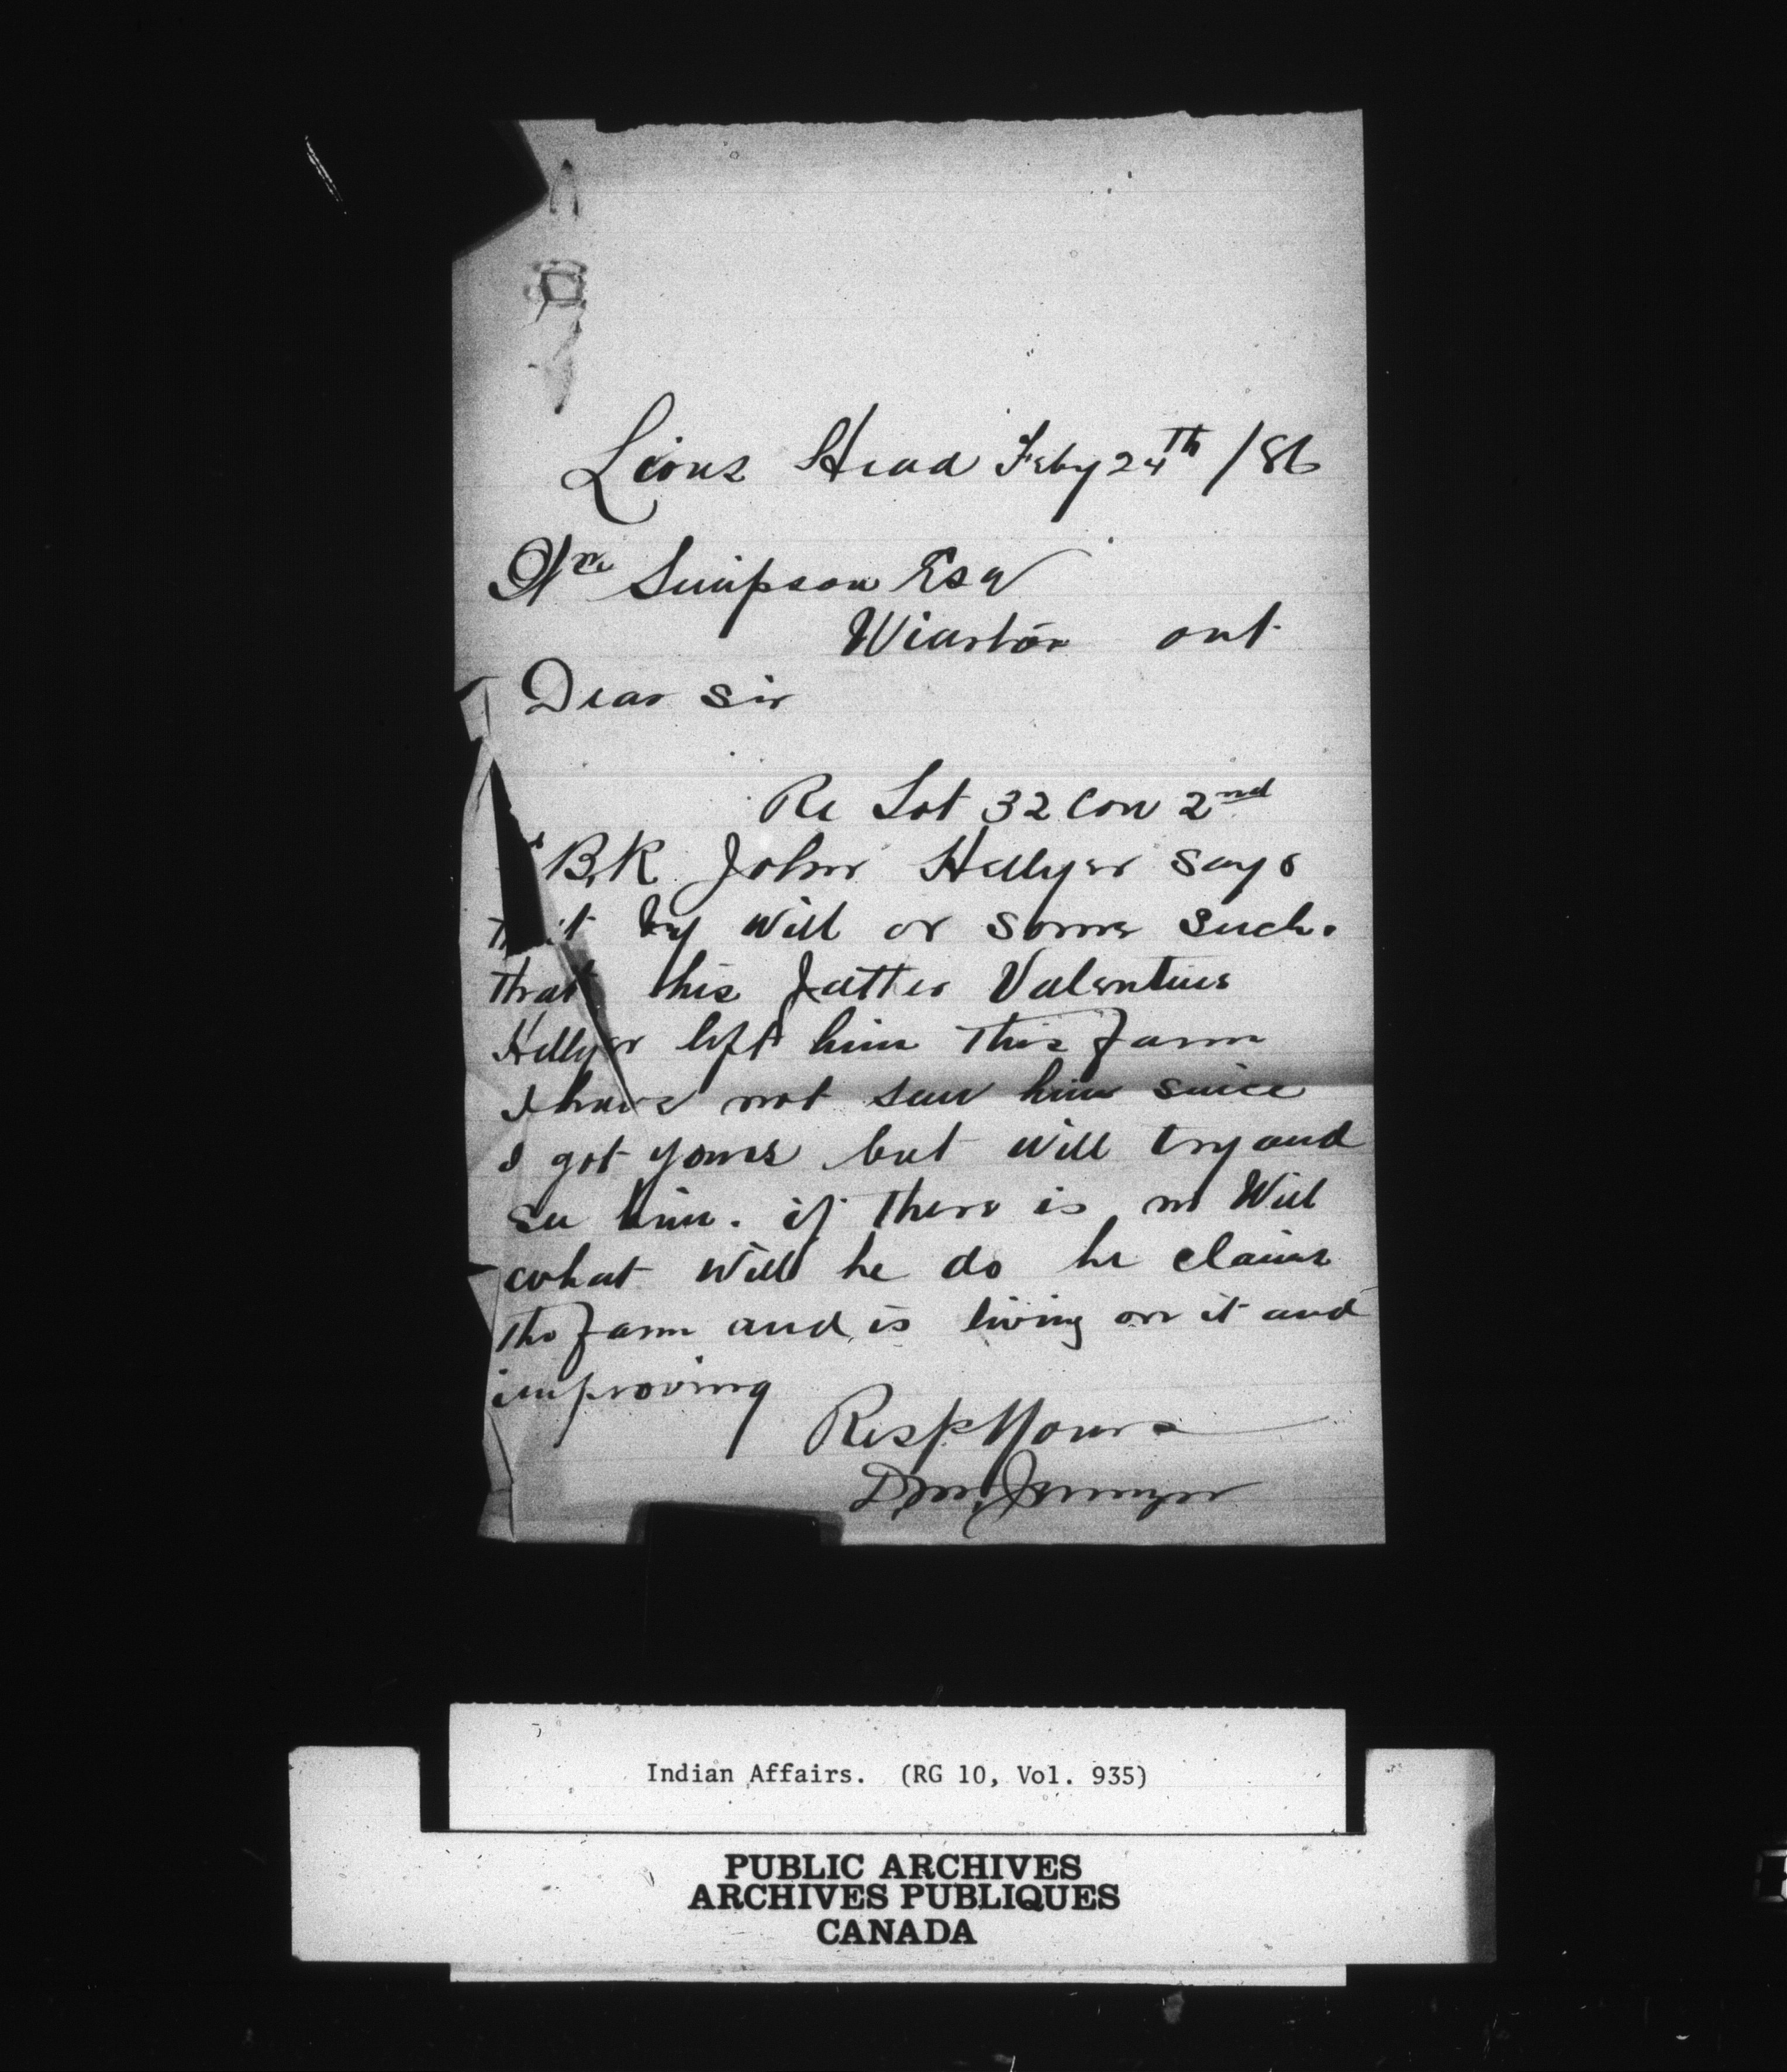 Lions Head Feby 24th /86
Wm Simpson Esq
Wiarton ont
Dear sir
Re Lot 32 Con 2nd
B,R John Hellyer says
that by will or some such.
that his father Valentine
Hellyer left him this farm
I have not seen him since
I got yours but will try and
see him. if there is no Will
what Will he do he claims
the farm and is living on it and
improving
Resp Yours
Indian Affairs. (RG 10, Vol. 935)
PUBLIC ARCHIVES
ARCHIVES PUBLIQUES
CANADA